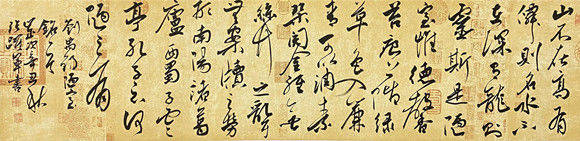 山不在高有
僊則名水不
在深有龍則
靈斯是陋
室惟德馨
苔痕上階綠
草色入簾
青可以調素
琴閱金經無
絲竹之亂耳
無案牘之勞
形南陽諸葛
廬西蜀子雲
亭孔子云何
陋之有
劉禹錫陋室
銘
歲次辛丑秋
書